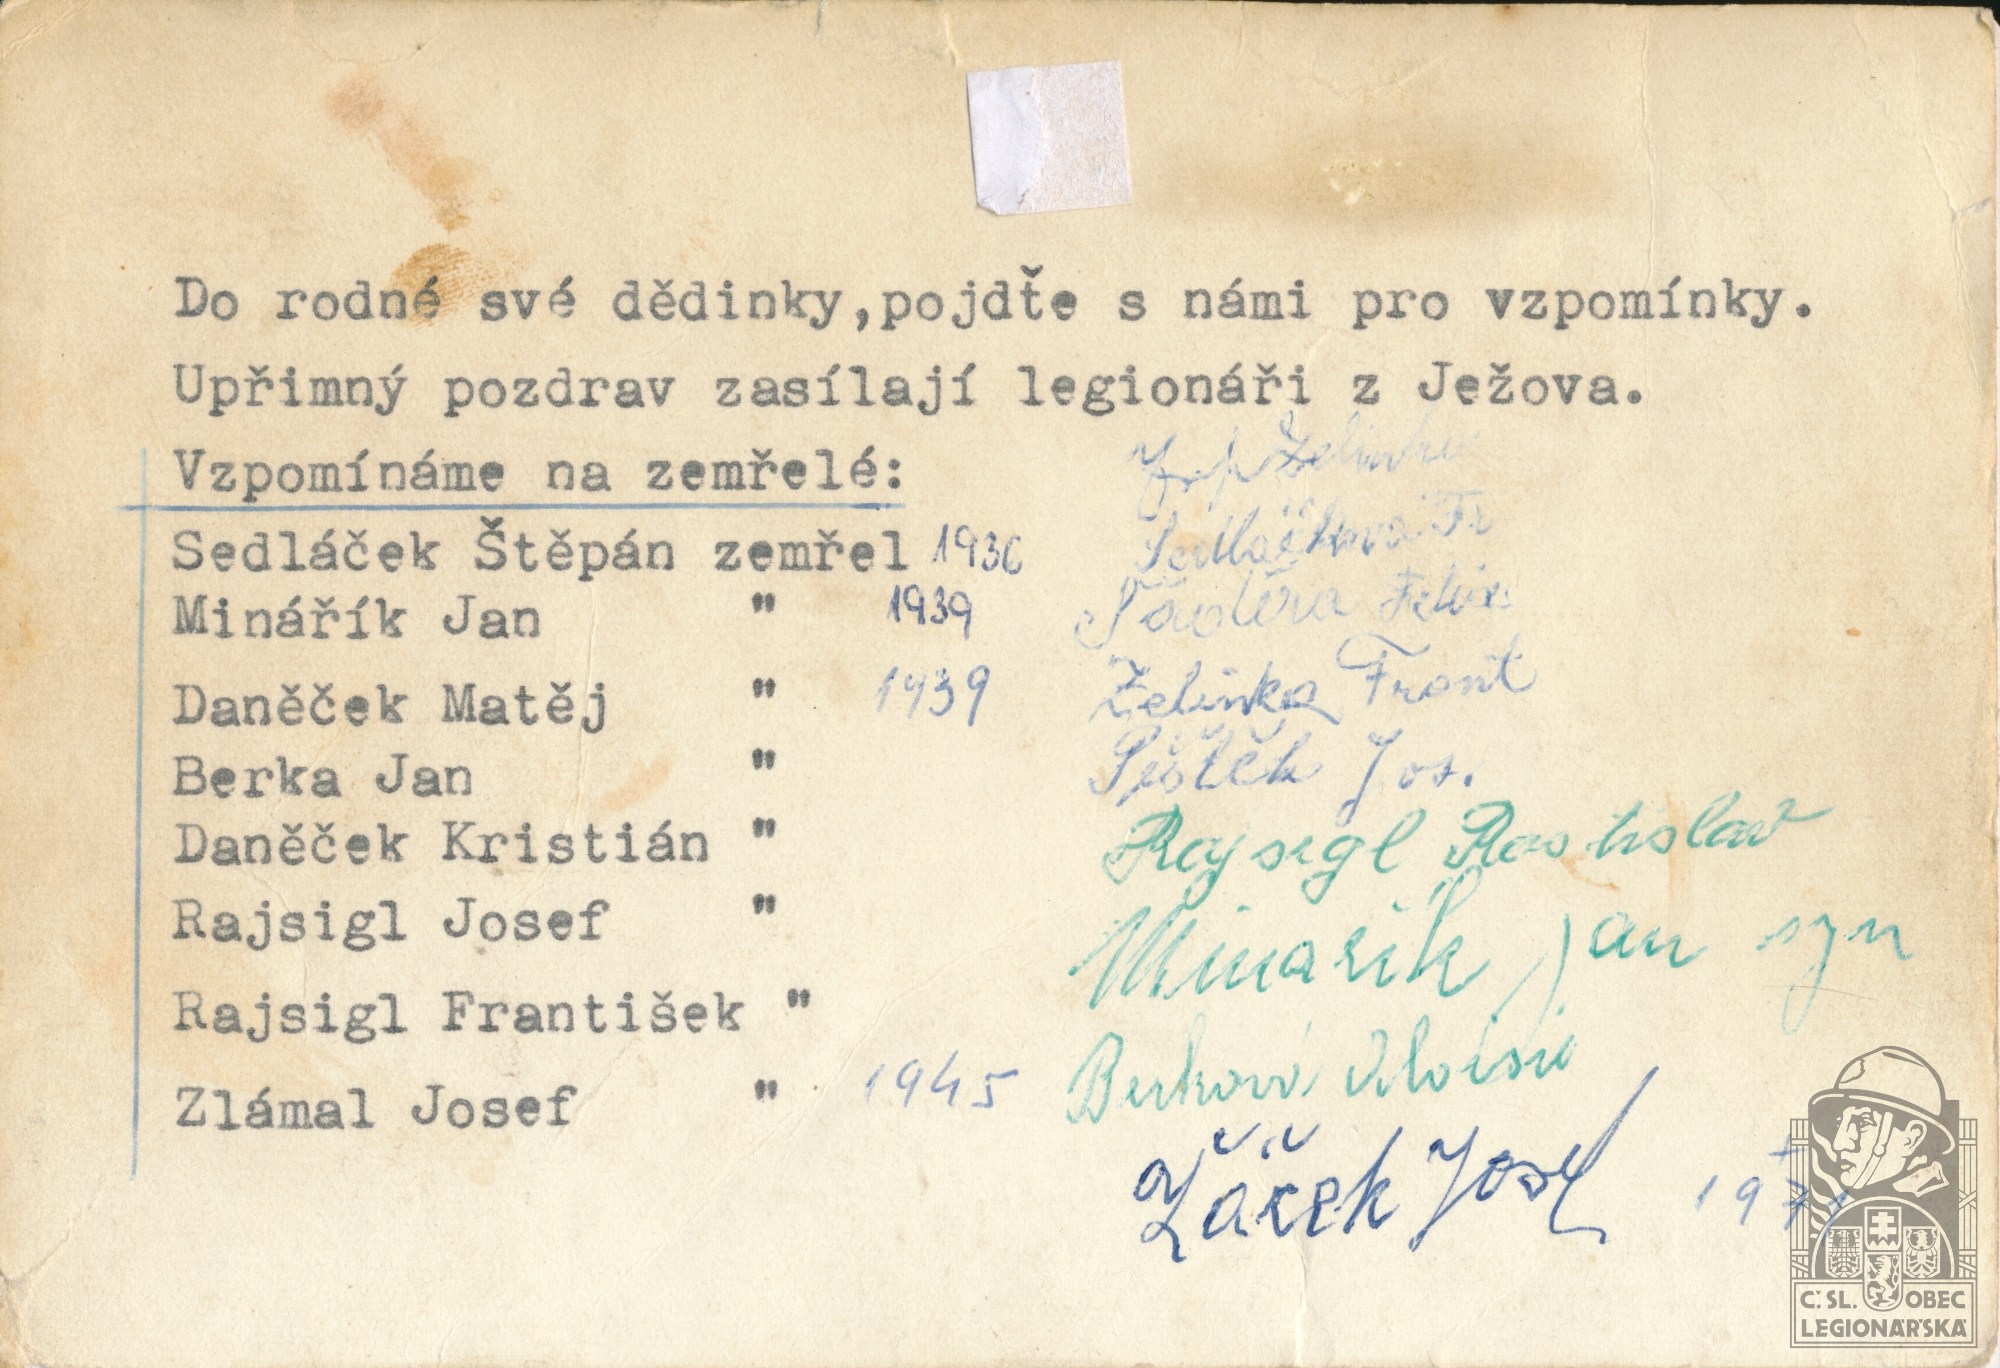 Do rodné své dědinky,pojdťe s námi pro vzpomínky.
Upřimný pozdrav zasílají legionáři z Ježova.
Vzpomínáme na zemřelé:
Sedláček Štěpán zemřel 1936
Minářík Jan " 1939
Daněček Matěj " 1939
Berka Jan "
Daněček Kristián "
Rajsigl Josef "
Rajsigl František "
Zlámal Josef " 1945
Želinka
Sedláčkova Fr
Želinka Frant
Šištěk Jos.
Rajsigl Rostislav
Minařík Jan syn
Berková Aloisie
Žáček Josef
+
1971
Č. SL. OBEC
LEGIONÁŘSKÁ